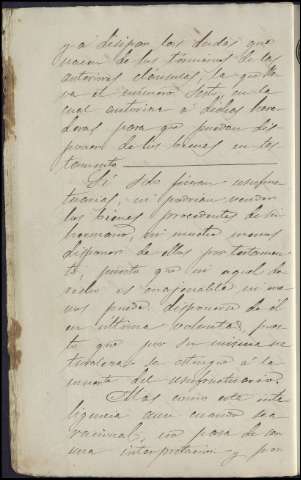 y á disipar las dudas que
nacen de los términos de las
anteriores cláusulas, la que lle
va el número sesto, en la
cual autoriza á dichas here
deras para que puedan dis
poner de los bienes en tes
tamento
Si solo fueran usufruc
tuarias, ni podrian vender
los bienes procedentes de su
hermano, ni mucho menos
disponer de ellos por testamen
to; puesto que ni aquel de
recho es enagenable ni me
nos puede disponerse de él
en última voluntad, pues
to que por su misma na
turaleza se estingue á la
muerte del usufructuario.
Mas como esta inte
ligencia aun cuando sea
racional, no pasa de ser
una interpretacion y por